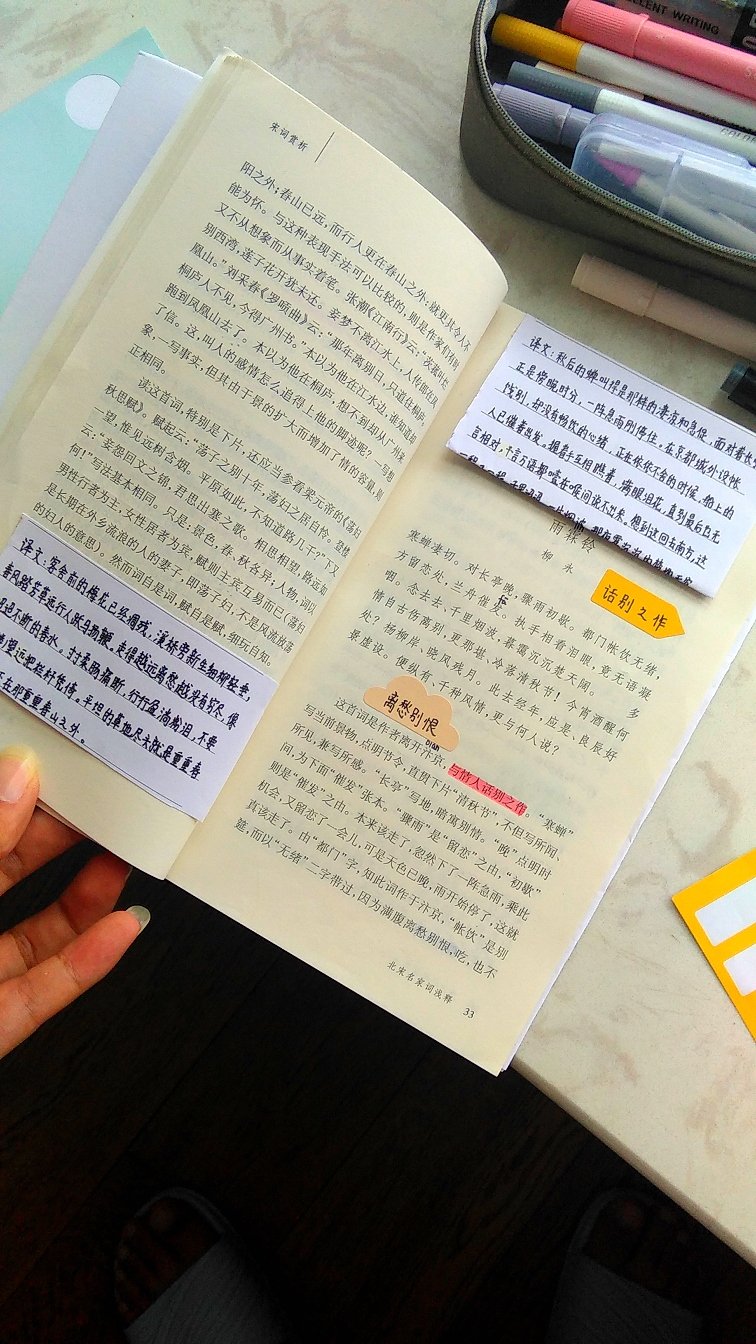 宋词赏析
阳之外；春山已远，而行人更在春山之外：就更兴令人不
能为怀。与这种表现手法可以比较的，则是作家们有时
又不从想象而从事实着笔。张潮《江南行》云：“茨菰叶烂
别西湾，莲子花开犹未还。妾梦不离江水上，人传郎在凤
凰山。”刘采春《罗唝曲》云：“那年离别日，只道往桐庐。
桐庐人不见，今得广州书。”本以为他在江水边，谁知道却
跑到凤凰山去了。本以为他在桐庐，想不到却从广州来
了信。这，叫人的感情怎么追得上他的脚迹呢？一写想
象，一写事实，但其由于景的扩大而增加了情的容量，则
正相同。
读这首词，特别是下片，还应当参看梁元帝的《荡妇
秋思赋》。赋起云：“荡子之别十年，荡妇之居自怜。登楼
一望，惟见远树含烟。平原如此，不知道路几千？”下又
云：“妾怨回文之锦，君思出塞之歌。相思相望，路远如
何！”写法基本相同。只是：景色，春、秋各异；人物，词以
男性行者为主，女性居者为宾，赋则主宾互易而已（荡妇
是长期在外乡流浪的人的妻子，即荡子妇，不是风流放荡
的妇人的意思）。然而词自是词，赋自是赋，细玩自知。
译文：客舍前的梅花已经凋残，溪桥旁新生细柳轻垂，
春风踏芳草远行人跃马扬鞭。走得越远离愁越没有穷尽，像
不断的春水。寸寸柔肠痛断，行行盈满粉泪，不要
望远把栏杆凭倚。平坦的草地尽头就是重重春
在那重重春山之外。
译文：秋后的蝉叫得是那样的凄凉和急促，面对着长亭
正是傍晚时分，一阵急雨刚停住。在京都城外设帐
饯别，却没有畅饮的心绪，正在依依不舍的时候，船上的
人已催着出发。握着手互相瞧着，满眼泪花，直到最后也无
言相对，千言万语都噎在喉间说不出来。想到这回去南方，这
雨霖铃
柳　永
话别之作
寒蝉凄切。对长亭晚，骤雨初歇。都门帐饮无绪，
方留恋处、兰舟催发。执手相看泪眼，竟无语凝
咽。念去去、千里烟波，暮霭沉沉楚天阔。　多
情自古伤离别，更那堪、冷落清秋节！今宵酒醒何
处？杨柳岸、晓风残月。此去经年，应是、良辰好
景虚设。便纵有、千种风情，更与何人说？
离愁别恨
这首词是作者离开汴京，与情人话别之作。“寒蝉”
写当前景物，点明节令，直贯下片“清秋节”，不但写所闻、
所见，兼写所感。“长亭”写地，暗寓别情。“晚”点明时
间，为下面“催发”张本。“骤雨”是“留恋”之由，“初歇”
则是“催发”之由。本来该走了，忽然下了一阵急雨，乘此
机会，又留恋了一会儿，可是天色已晚，雨开始停了，这就
真该走了。由“都门”字，知此词作于汴京，“帐饮”是别
筵，而以“无绪”二字带过，因为满腹离愁别恨，吃，也不
北宋名家词浅释
33